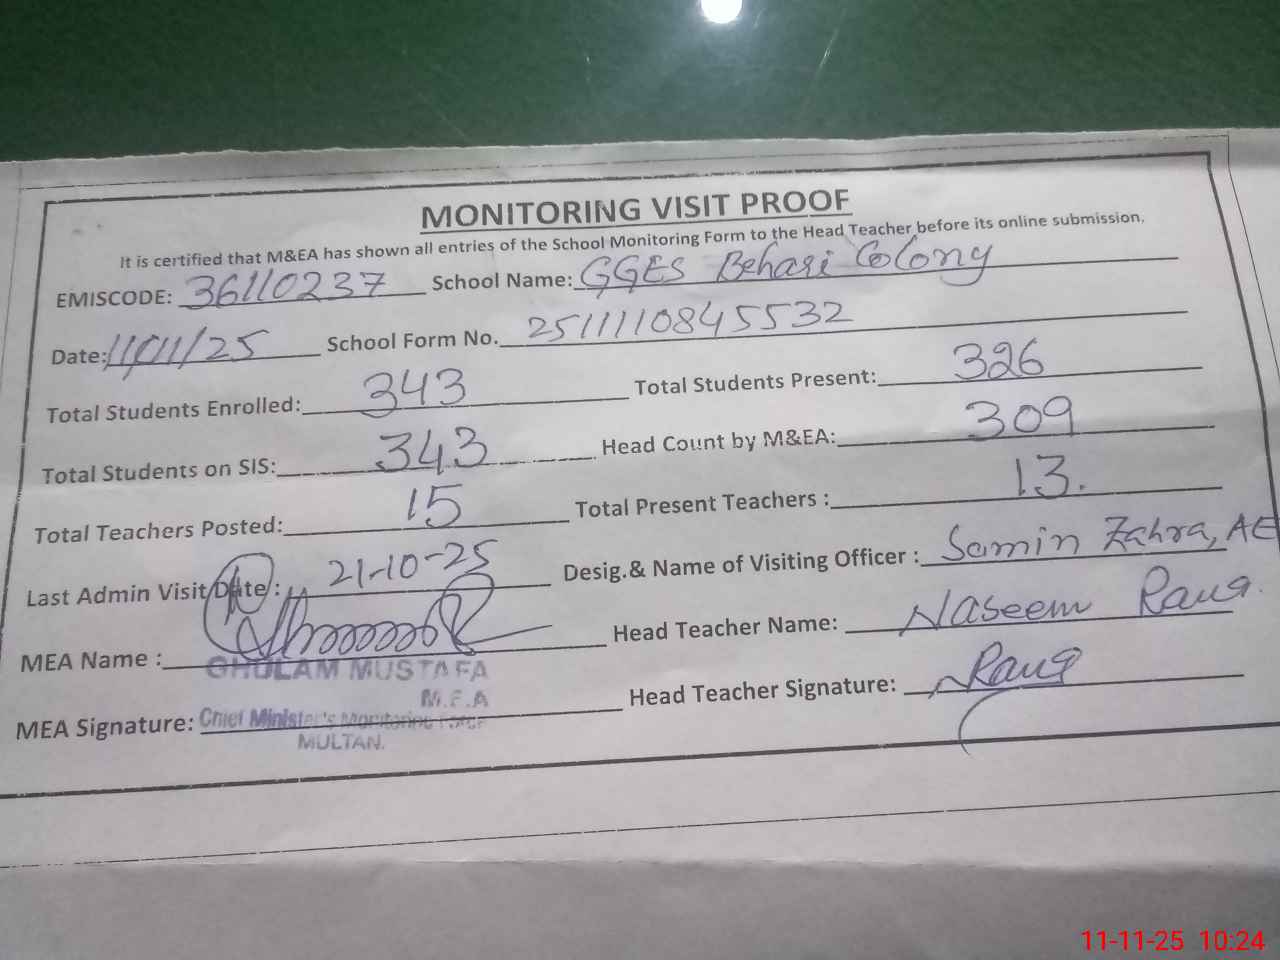 MONITORING VISIT PROOF
It is certified that M&EA has shown all entries of the School Monitoring Form to the Head Teacher before its online submission.
EMISCODE: 36110237 School Name: GGES Behari Colony
Date: 11/11/25 School Form No. 2511110845532
Total Students Enrolled: 343 Total Students Present: 326
Total Students on SIS: 343 Head Count by M&EA: 309
Total Teachers Posted: 15 Total Present Teachers : 13.
Last Admin Visit Date : 21-10-25 Desig.& Name of Visiting Officer : Samin Zahra, AE
MEA Name : Head Teacher Name: Naseem Rana
GHULAM MUSTAFA
M.E.A
MEA Signature: Chief Minister's Monitoring Force Head Teacher Signature: Rana
MULTAN.
11-11-25 10:24